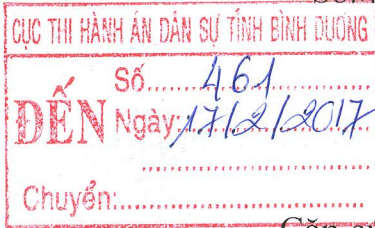 CỤC THI HÀNH ÁN DÂN SỰ TỈNH BÌNH DƯƠNG
Số 461
ĐẾN Ngày: 17/2/2017
Chuyển: